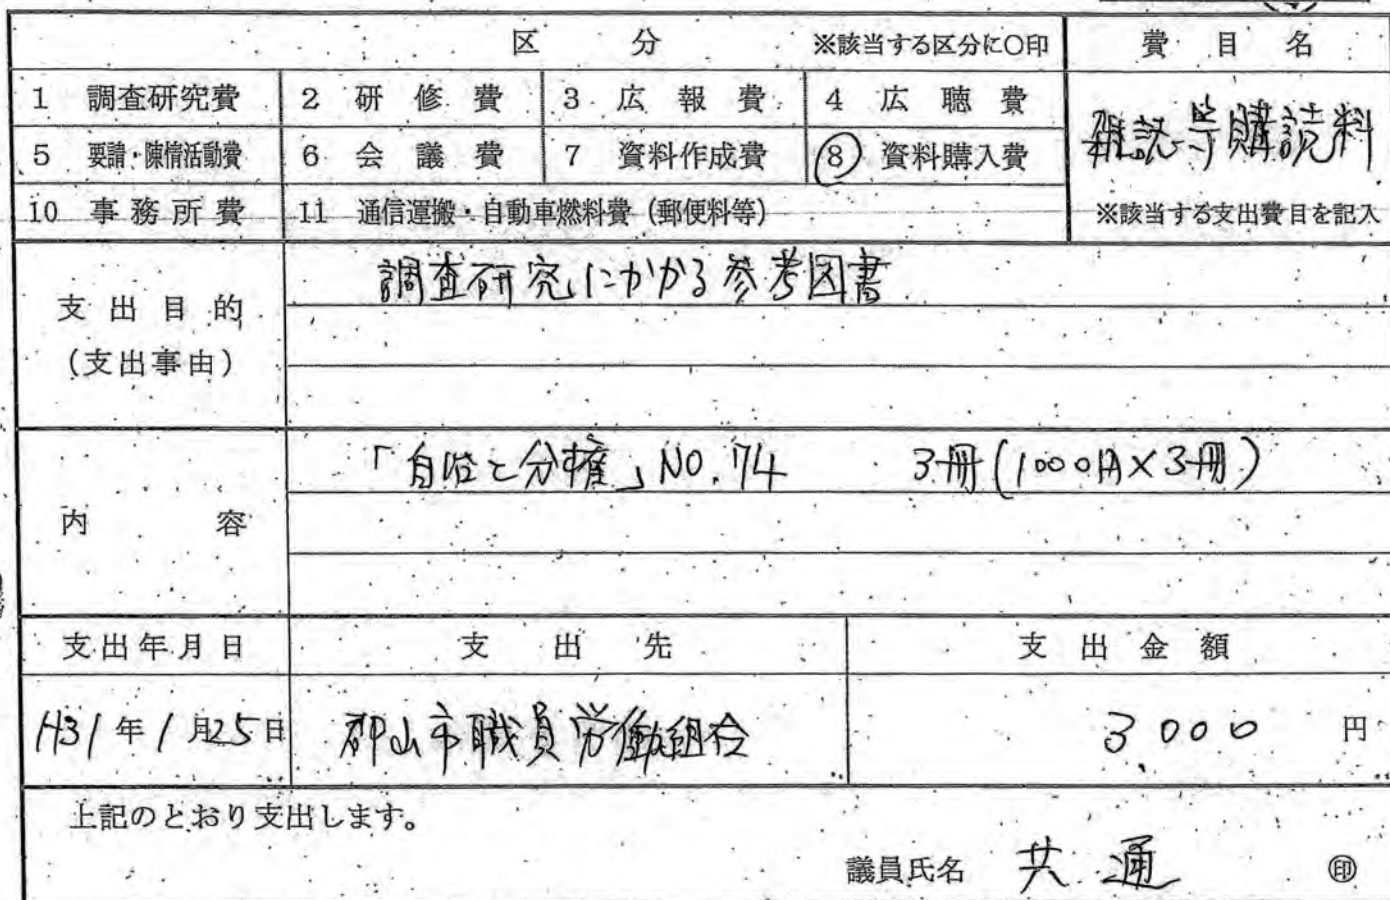 区 分 ※該当する区分に○印 費目名
1 調査研究費 2 研修費 3 広報費 4 広聴費
雑誌等購読料
5 要請・陳情活動費 6 会議費 7 資料作成費 ⑧ 資料購入費
10 事務所費 11 通信運搬・自動車燃料費(郵便料等) ※該当する支出費目を記入
調査研究にかかる参考図書
支出目的
(支出事由)
「自治と分権」NO.74 3冊(1000円×3冊)
内 容
支出年月日 支出先 支出金額
H31年1月25日 郡山市職員労働組合 3,000円
上記のとおり支出します。
議員氏名 共通 ㊞